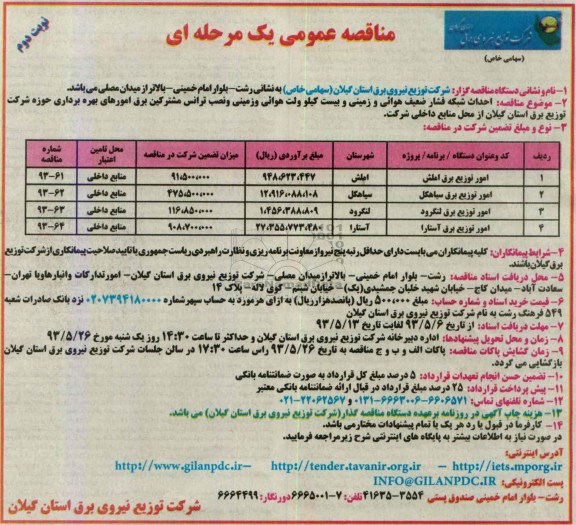 شرکت توزیع نیروی برق
(سهامی خاص)
مناقصه عمومی یک مرحله ای
نوبت دوم
۱- نام و نشانی دستگاه مناقصه گزار: شرکت توزیع نیروی برق استان گیلان (سهامی خاص) به نشانی رشت- بلوار امام خمینی- بالاتر از میدان مصلی می باشد.
۲- موضوع مناقصه: احداث شبکه فشار ضعیف هوائی و زمینی و بیست کیلو ولت هوائی وزمینی ونصب ترانس مشترکین برق امورهای بهره برداری حوزه شرکت
توزیع برق استان گیلان از محل منابع داخلی شرکت.
۳- نوع و مبلغ تضمین شرکت در مناقصه:
ردیف | کد وعنوان دستگاه / برنامه / پروژه | شهرستان | مبلغ برآوردی (ریال) | میزان تضمین شرکت در مناقصه | محل تامین اعتبار | شماره مناقصه
۱ | امور توزیع برق املش | املش | ۹۴۸،۶۲۳،۴۴۷ | ۹۱،۵۰۰،۰۰۰ | منابع داخلی | ۹۳-۶۱
۲ | امور توزیع برق سیاهکل | سیاهکل | ۱۲،۹۱۶،۰۸۸،۱۰۸ | ۴۷۵،۵۰۰،۰۰۰ | منابع داخلی | ۹۳-۶۲
۳ | امور توزیع برق لنگرود | لنگرود | ۱،۴۵۶،۳۸۸،۸۰۹ | ۱۱۶،۸۵۰،۰۰۰ | منابع داخلی | ۹۳-۶۳
۴ | امور توزیع برق آستارا | آستارا | ۲۷،۳۵۵،۷۷۳،۴۸۰ | ۹۰۸،۷۰۰،۰۰۰ | منابع داخلی | ۹۳-۶۴
۴- شرایط پیمانکاران: کلیه پیمانکاران می بایست دارای حداقل رتبه پنج نیرو از معاونت برنامه ریزی و نظارت راهبردی ریاست جمهوری با تایید صلاحیت پیمانکاری از شرکت توزیع
برق گیلان باشند.
۵- محل دریافت اسناد مناقصه: رشت- بلوار امام خمینی- بالاتر از میدان مصلی- شرکت توزیع نیروی برق استان گیلان- امور تدارکات وانبارها ویا تهران-
سعادت آباد- میدان کاج- خیابان شهید خلبان جمشیدی(یک)- خیابان شبنم- کوی لاله- پلاک ۱۴
۶- قیمت خرید اسناد و شماره حساب: مبلغ ۵۰۰،۰۰۰ ریال (پانصدهزارریال) به ازای هرمورد به حساب سپهر شماره ۰۲۰۷۳۹۴۱۸۰۰۰۰ نزد بانک صادرات شعبه
۵۴۹ فرهنگ رشت به نام شرکت توزیع نیروی برق استان گیلان
۷- مهلت دریافت اسناد: از تاریخ ۹۳/۵/۶ لغایت تاریخ ۹۳/۵/۱۳
۸- زمان و محل تحویل پیشنهادها: اداره دبیرخانه شرکت توزیع نیروی برق استان گیلان و حداکثر تا ساعت ۱۴:۳۰ روز یک شنبه مورخ ۹۳/۵/۲۶
۹- زمان گشایش پاکات مناقصه: پاکات الف و ب و ج مناقصه به تاریخ ۹۳/۵/۲۶ راس ساعت ۱۷:۳۰ در سالن جلسات شرکت توزیع نیروی برق استان گیلان
بازگشایی می گردد.
۱۰- تضمین حسن انجام تعهدات قرارداد: ۵ درصد مبلغ کل قرارداد به صورت ضمانتنامه بانکی
۱۱- پیش پرداخت قرارداد: ۲۵ درصد مبلغ قرارداد در قبال ارائه ضمانتنامه بانکی معتبر
۱۲- شماره تلفنهای تماس: ۶۶۰۶۵۷۱-۶۶۶۳۰۰۶-۰۱۳۱ و ۲۲۰۶۲۵۶۷-۰۲۱
۱۳- هزینه چاپ آگهی در روزنامه برعهده دستگاه مناقصه گذار(شرکت توزیع نیروی برق استان گیلان) می باشد.
۱۴- کارفرما در قبول یا رد هر یک یا تمام پیشنهادات مختار می باشد.
در صورت نیاز به اطلاعات بیشتر به پایگاه های اینترنتی شرح زیر مراجعه فرمایید.
آدرس اینترنتی:
http://www.gilanpdc.ir— http://tender.tavanir.org.ir — http://iets.mporg.ir
پست الکترونیکی: INFO@GILANPDC.IR
رشت- بلوار امام خمینی صندوق پستی ۳۵۵۴-۴۱۶۳۵ تلفن: ۷-۶۶۶۵۰۰۱ دورنگار: ۶۶۶۴۴۹۹
شرکت توزیع نیروی برق استان گیلان